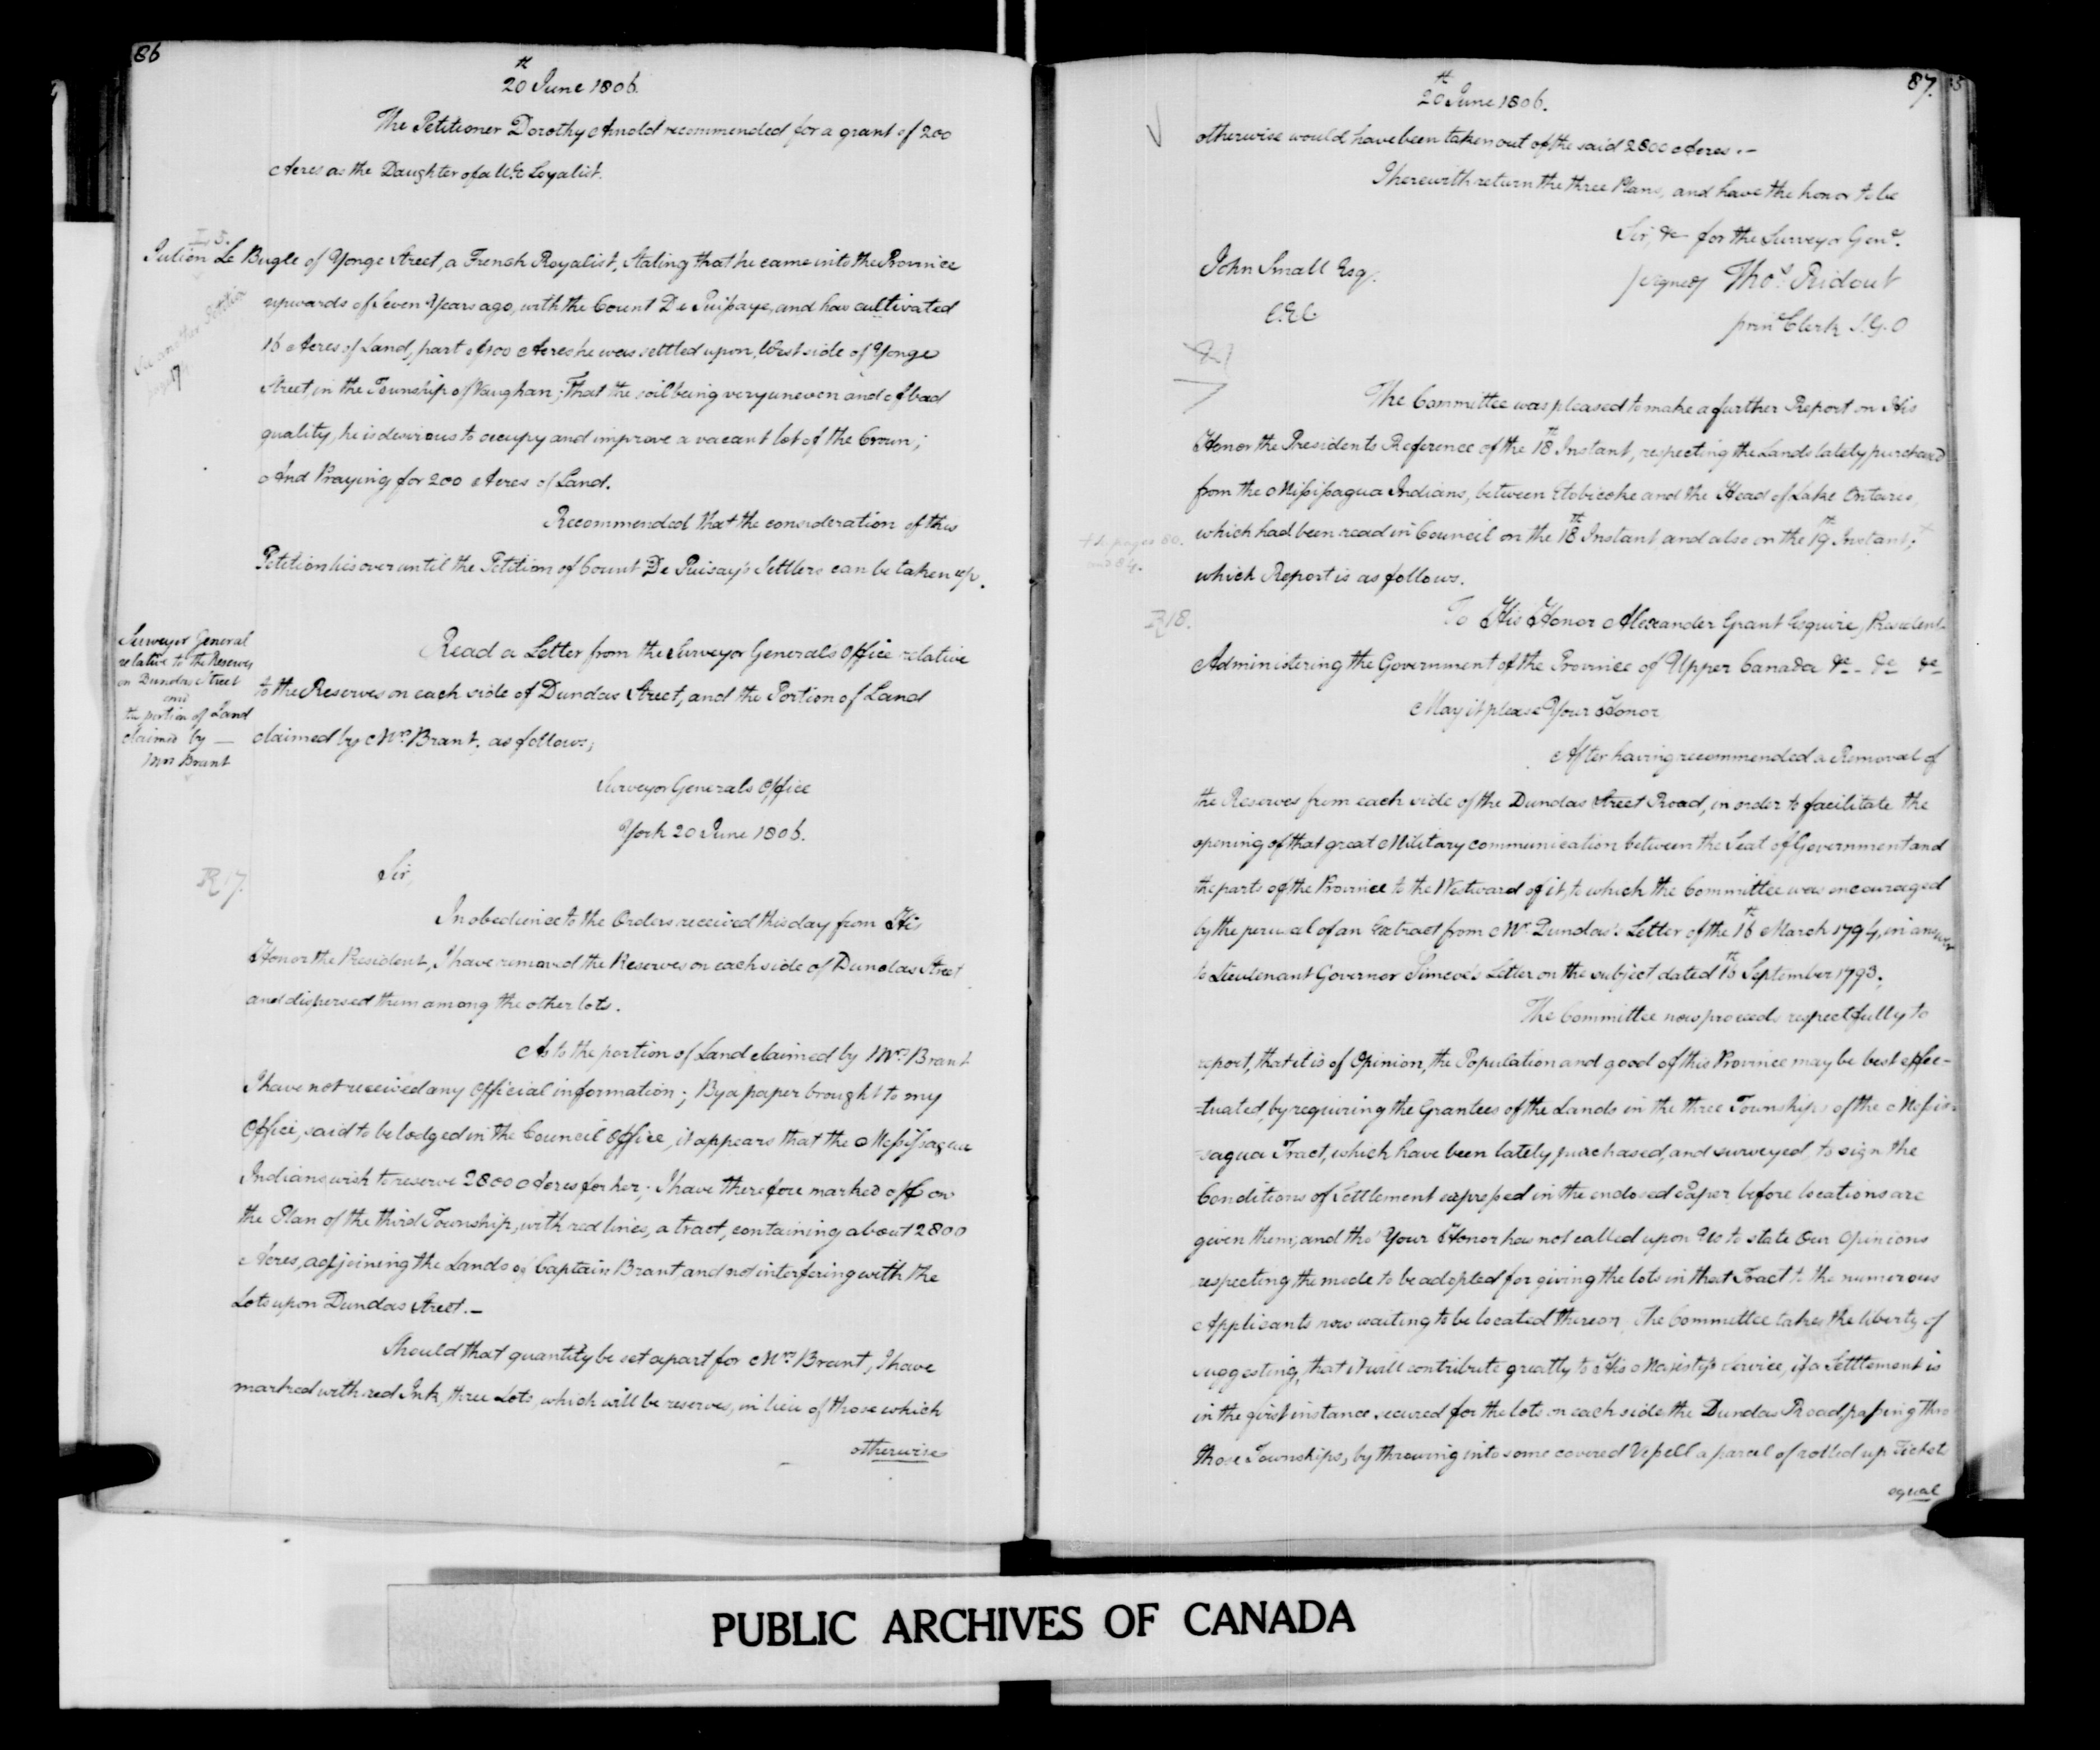 86
20th June 1806.
The Petitioner Dorothy Arnold recommended for a grant of 200
Acres as the Daughter of a U.E. Loyalist.
L 5.
Julien Le Bugle of Yonge Street, a French Royalist, Stating that he came into the Province
upwards of Seven Years ago, with the Count De Puisaye, and has cultivated
16 Acres of Land, part of 100 Acres he was settled upon, West side of Yonge
Street, in the Township of Vaughan; That the soil being very uneven and of bad
quality, he is desirous to occupy and improve a vacant lot of the Crown;
And Praying for 200 Acres of Land.
See another Petition
page
Recommended that the consideration of this
Petition lies over until the Petition of Count De Puisay's Settlers can be taken up.
Surveyor General
relative to the Reserves
on Dundas Street
and
the portion of Land
claimed by —
Mrs Brant
Read a Letter from the Surveyor Generals Office relative
to the Reserves on each side of Dundas Street, and the Portion of Land
claimed by Mrs. Brant, as follows;
Surveyor Generals Office
York 20 June 1806.
R 17.
Sir,
In obedience to the Orders received this day from His
Honor the President, I have removed the Reserves on each side of Dundas Street
and dispersed them among the other lots.
As to the portion of Land claimed by Mrs. Brant
I have not received any Official information; By a paper brought to my
Office, said to be lodged in the Council Office, it appears that the Messissague
Indians wish to reserve 2800 Acres for her; I have therefore marked off on
the Plan of the third Township, with red lines, a tract, containing about 2800
Acres, adjoining the Lands of Captain Brant and not interfering with the
Lots upon Dundas Street.—
Should that quantity be set apart for Mrs. Brant, I have
marked with red Ink, three Lots, which will be reserves, in lieu of those which
otherwise
87.
20th June 1806.
otherwise would have been taken out of the said 2800 Acres.—
I herewith return the three Plans, and have the honor to be
Sir, &c for the Surveyor Genl.
John Small Esq.
signed Thos. Ridout
C.E.C.
prinl Clerk S.G.O
The Committee was pleased to make a further Report on His
Honor the Presidents Reference of the 18th Instant, respecting the Lands lately purchased
from the Missisagua Indians, between Etobicoke and the Head of Lake Ontario,
which had been read in Council on the 18th Instant and also on the 19th Instant; +
+ In pages 80.
and 84.
which Report is as follows.
R 18.
To His Honor Alexander Grant Esquire, President
Administering the Government of the Province of Upper Canada &c- &c &c
May it please Your Honor
After having recommended a Removal of
the Reserves from each side of the Dundas Street Road, in order to facilitate the
opening of that great Military communication between the Seat of Government and
the parts of the Province to the Westward of it, to which the Committee was encouraged
by the perusal of an Extract from Mr. Dundas's Letter of the 16th March 1794, in answer
to Lieutenant Governor Simcoe's Letter on the subject, dated 16th September 1793.
The Committee now proceeds respectfully to
report, that it is of Opinion, the Population and good of this Province may be best effec-
-tuated, by requiring the Grantees of the Lands in the three Townships of the Messis-
-sagua Tract, which have been lately purchased, and surveyed, to sign the
Conditions of Settlement expressed in the enclosed Paper, before locations are
given them; and tho' Your Honor has not called upon Us to state Our Opinions
respecting the mode to be adopted for giving the lots in that Tract to the numerous
Applicants now waiting to be located thereon, The Committee takes the liberty of
suggesting, that it will contribute greatly to His Majestys Service, if a Setttlement is
in the first instance secured for the lots on each side the Dundas Road, passing thro
those Townships, by throwing into some covered Vessell a parcel of rolled up Tickets
equal
PUBLIC ARCHIVES OF CANADA